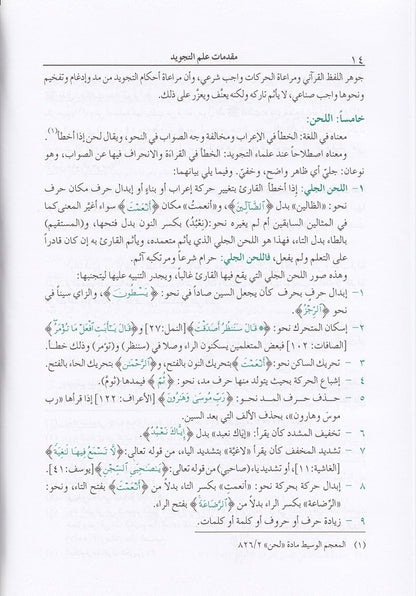 ١٤ مقدمات علم التجويد
جوهر اللفظ القرآني ومراعاة الحركات واجب شرعي، وأن مراعاة أحكام التجويد من مد وإدغام وتفخيم
ونحوها واجب صناعي، لا يأثم تاركه ولكنه يعنَّف ويعزَّر على ذلك.
خامساً: اللحن:
معناه في اللغة: الخطأ في الإعراب ومخالفة وجه الصواب في النحو، ويقال لحن إذا أخطأ(١).
ومعناه اصطلاحاً عند علماء التجويد: الخطأ في القراءة والانحراف فيها عن الصواب، وهو
نوعان: جليّ أي ظاهر واضح، وخفيّ. وفيما يلي بيانهما:
١- اللحن الجلي: إذا أخطأ القارئ بتغيير حركة إعراب أو بناءٍ أو إبدال حرف مكان حرف
نحو: «الظالين» بدل ﴿ ٱلضَّآلِّينَ ﴾، و«أنعمتُ» مكان ﴿ أَنْعَمْتَ ﴾ سواء أغيّر المعنى كما
في المثالين السابقين أم لم يغيره نحو:(نِعْبُدُ) بكسر النون بدل فتحها، و(المستقيم)
بالطاء بدل التاء، فهذا هو اللحن الجلي الذي يأثم متعمده، ويأثم فاعله به إن كان قادراً
على التعلم ولم يفعل، فاللحن الجلي: حرام شرعاً ومرتكبه آثم.
وهذه صور اللحن الجلي التي يقع فيها القارئ غالباً، ويجدر التنبيه عليها ليتجنبها:
١- إبدال حرفٍ بحرف كأن يجعل السين صاداً في نحو: ﴿ يَسْطُونَ ﴾، والزاي سيناً في
نحو ﴿ ٱلرِّجْزُ ﴾.
٢- إسكان المتحرك نحو: ﴿ ۞ قَالَ سَنَنظُرُ أَصَدَقْتَ ﴾[النمل:٢٧] و﴿ قَالَ يَٰٓأَبَتِ ٱفْعَلْ مَا تُؤْمَرُ ﴾
[الصافات: ١٠٢] فبعض المتعلمين يسكنون الراء وصلا في (سننظر) و(تؤمر) و ذلك خطـأ.
٣ - تحريك الساكن نحو: ﴿ أَنْعَمْتَ ﴾ بتحريك النون بالفتح، و﴿ ٱلرَّحْمَٰنِ ﴾ بتحريك الحاء بالفتح.
٤ - إشباع الحركة بحيث يتولد منها حرف مد، نحو: ﴿ ثُمَّ ﴾ فيمدها (ثُومَّ).
٥ - حذف حرف المـد نحـو: ﴿ رَبِّ مُوسَىٰ وَهَٰرُونَ ﴾ [الأعراف: ١٢٢] إذا قرأها «رب
موسَ وهارون»، بحذف الألف التي بعد السين.
٦ - تخفيف المشدد كأن يقرأ: «إيَاك نعبد» بدل ﴿ إِيَّاكَ نَعْبُدُ ﴾.
٧ - تشديد المخفف كأن يقرأ «لاغيَّة» بتشديد الياء، من قوله تعالى: ﴿ لَّا تَسْمَعُ فِيهَا لَٰغِيَةً ﴾
[الغاشية: ١١]، أو تشديد ياء (صاحبي) من قوله تعالى: ﴿ يَٰصَىٰحِبَيِ ٱلسِّجْنِ ﴾[يوسف: ٤١].
٨ - إبدال حركة بحركة نحو: «أنعمتِ» بكسر التاء بدلا من ﴿ أَنْعَمْتَ ﴾ بفتح التاء، ونحو:
«الرِّضاعة» بكسر الراء بدلا من ﴿ ٱلرَّضَاعَةَ ﴾ بفتح الراء.
٩ - زيادة حرف أو حروف أو كلمة أو كلمات.
(١) المعجم الوسيط مادة «لحن» ٨٢٦/٢